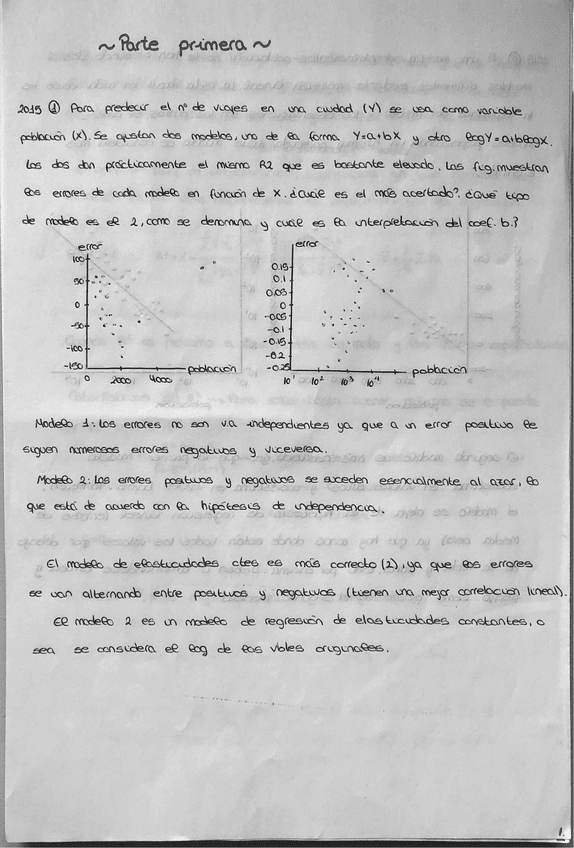 ~ Parte primera ~
2015 ① Para predecir el nº de viajes en una ciudad (Y) se usa como variable
población (X). Se ajustan dos modelos, uno de la forma Y=a+bX y otro logY=a+blogX.
Los dos dan prácticamente el mismo R2 que es bastante elevado. Las fig. muestran
los errores de cada modelo en función de X. ¿Cuál es el más acertado?. ¿Qué tipo
de modelo es el 2, como se denomina y cuál es la interpretación del coef. b.?
error
100
50
0
-50
-100
-150
0 2000 4000
población
error
0.15
0.1
0.05
0
-0.05
-0.1
-0.15
-0.2
-0.25
10¹ 10² 10³ 10⁴
población
Modelo 1: Los errores no son v.a independientes ya que a un error positivo le
siguen numerosos errores negativos y viceversa.
Modelo 2: Los errores positivos y negativos se suceden esencialmente al azar, lo
que está de acuerdo con la hipótesis de independencia.
El modelo de elasticidades ctes es más correcto (2), ya que los errores
se van alternando entre positivos y negativos (tienen una mejor correlación lineal).
El modelo 2 es un modelo de regresión de elasticidades constantes, o
sea se considera el log de las vbles originales.
1.